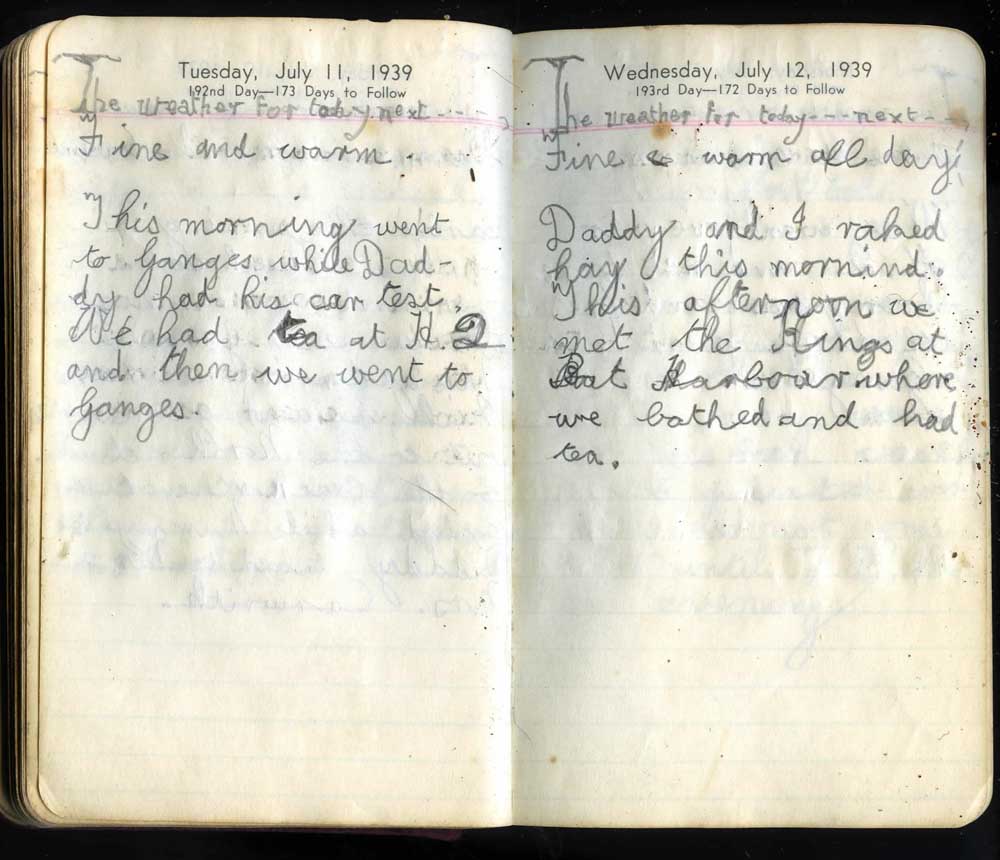 Tuesday, July 11, 1939
192nd Day—173 Days to Follow
The weather for today next ----
Fine and warm.
This morning went
to Ganges while Dad-
dy had his car test.
We had tea at H 2
and then we went to
Ganges.
Wednesday, July 12, 1939
193rd Day—172 Days to Follow
The weather for today --- next --
Fine & warm all day!
Daddy and I raked
hay this mornind.
This afternoon we
met the Kings at
Harbour where
we bathed and had
tea.